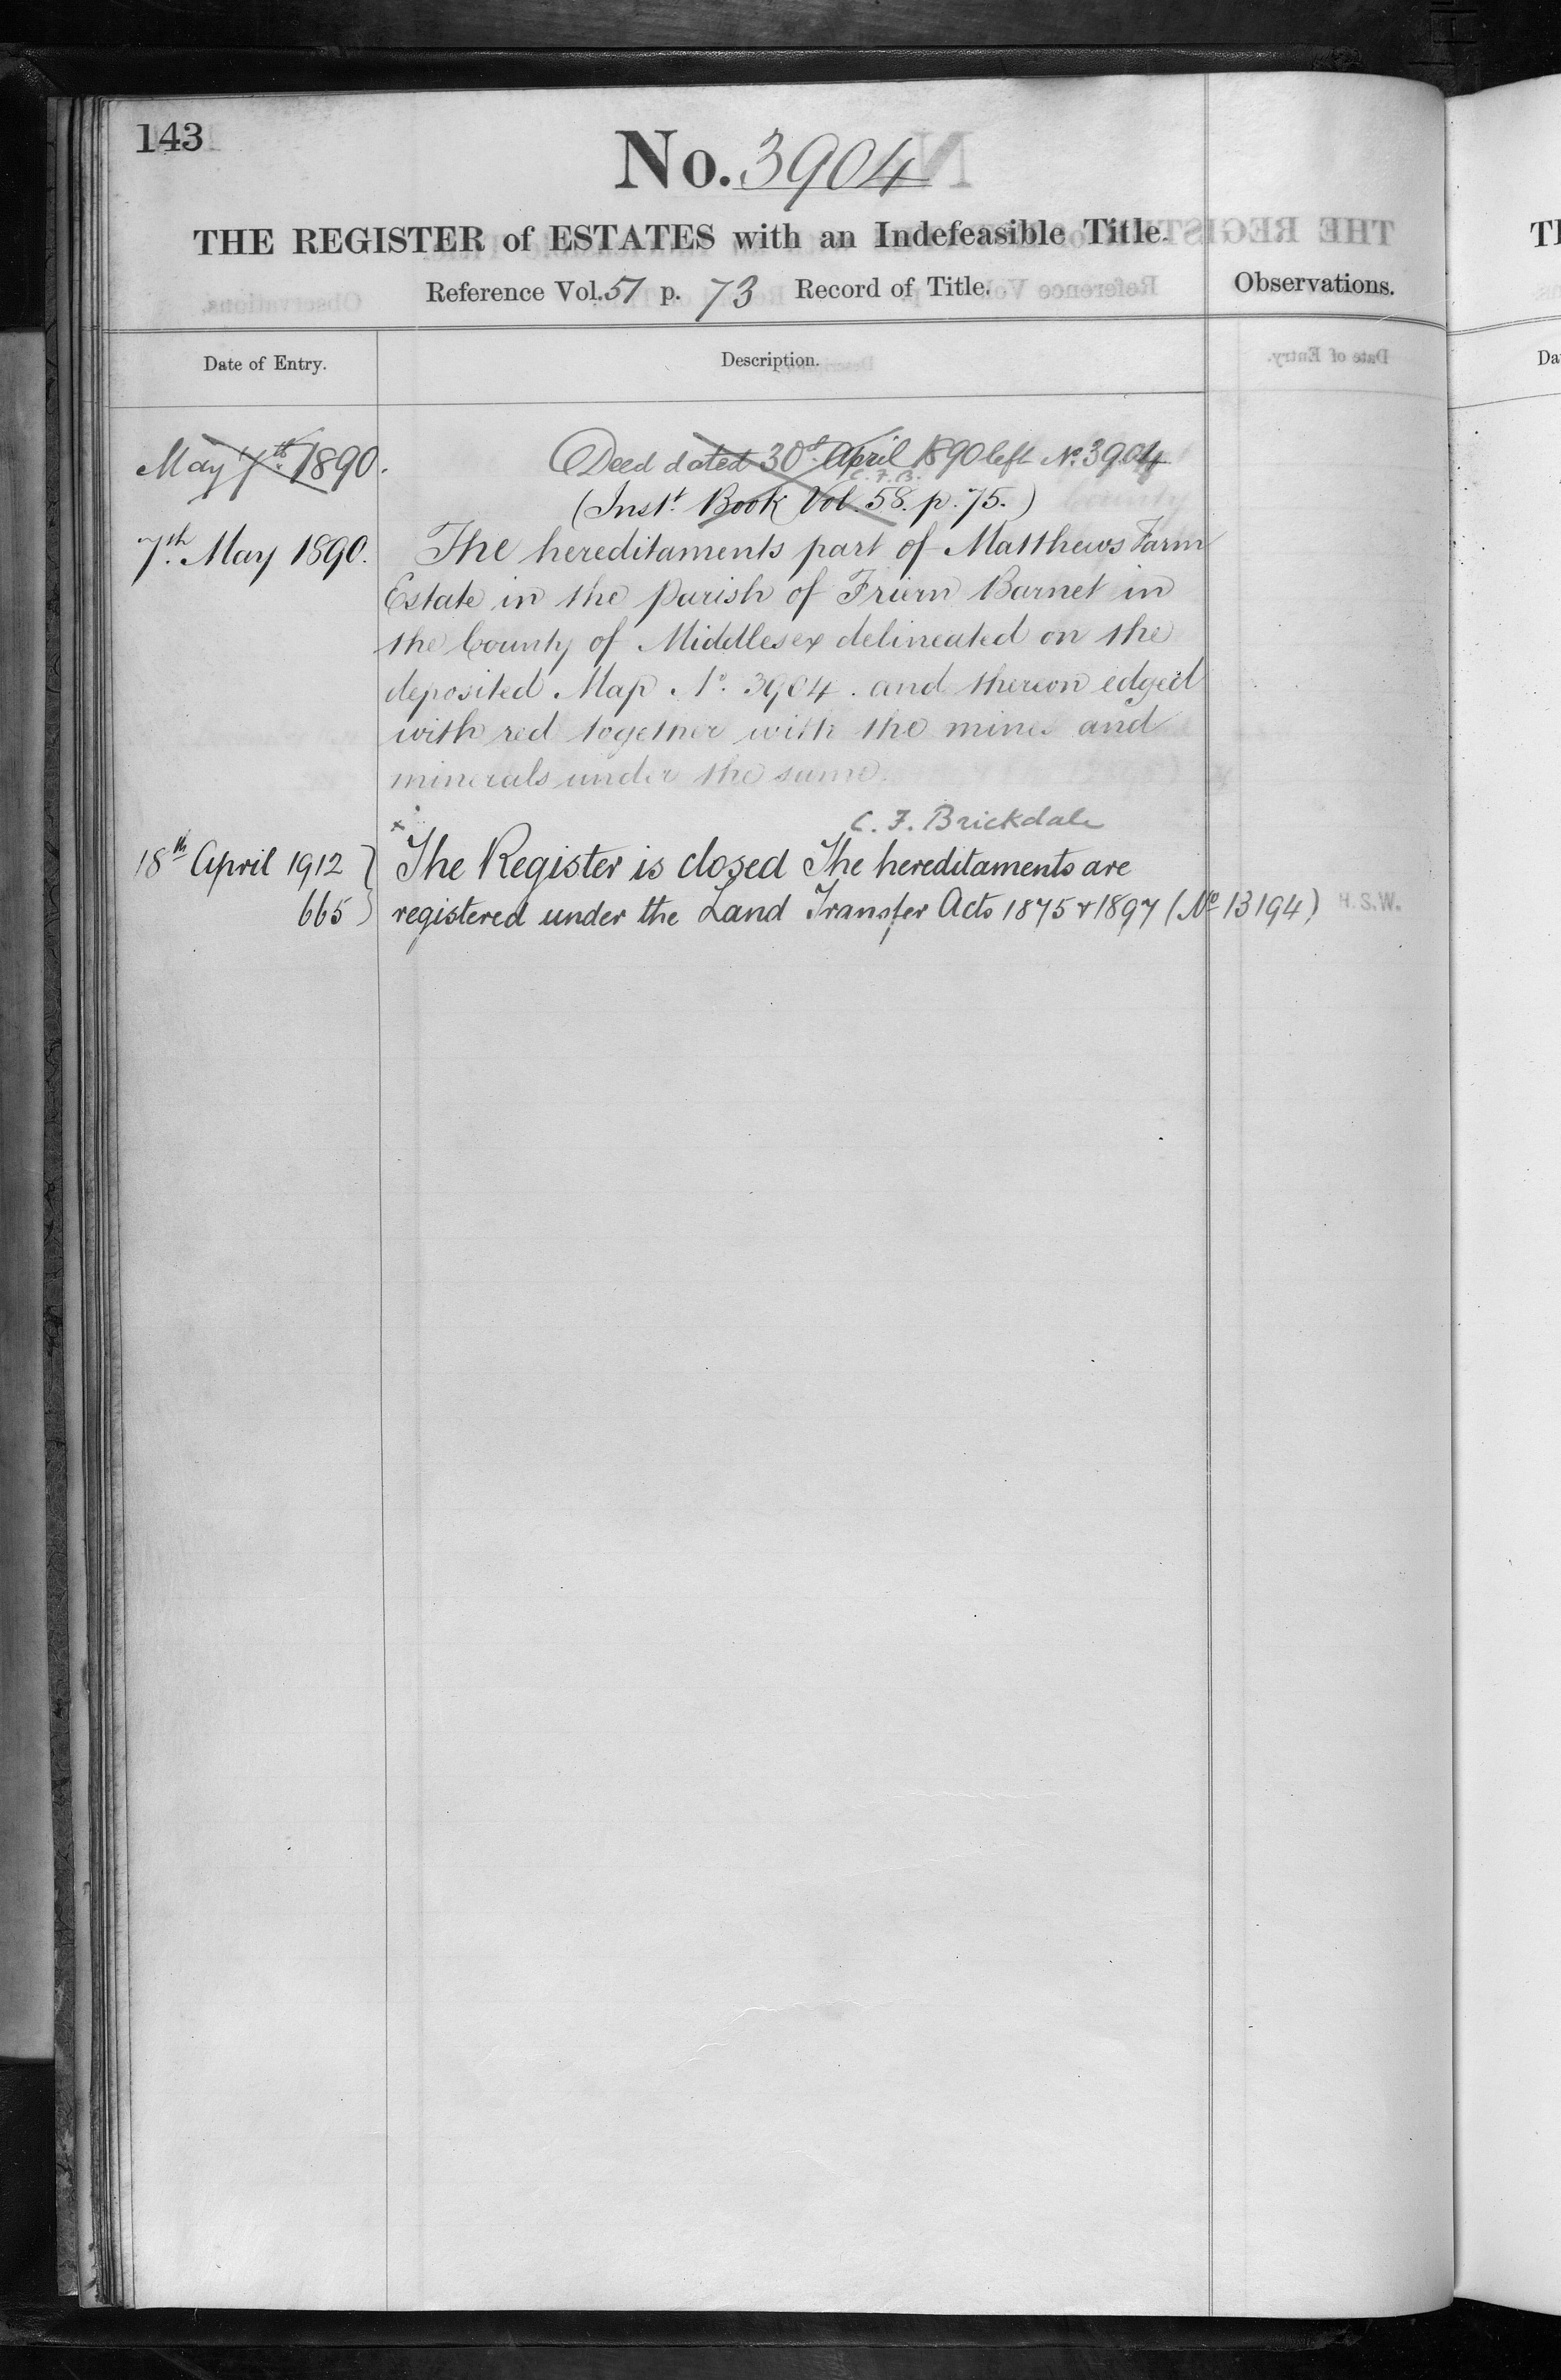 143
No. 3904
THE REGISTER of ESTATES with an Indefeasible Title.
Reference Vol. 51 p. 73 Record of Title.
Observations.
Date of Entry.
Description.
May 7th 1890.
Deed dated 30th April 1890 left No. 3904
C. F. B.
(Inst. Book Vol. 58. p. 75.)
7th May 1890.
The hereditaments part of Matthews Farm
Estate in the Parish of Friern Barnet in
the County of Middlesex delineated on the
deposited Map No. 3904. and thereon edged
with red together with the mines and
minerals under the same.
C. F. Brickdale
18th April 1912
665
The Register is closed The hereditaments are
registered under the Land Transfer Acts 1875 & 1897 (No 13194) H.S.W.